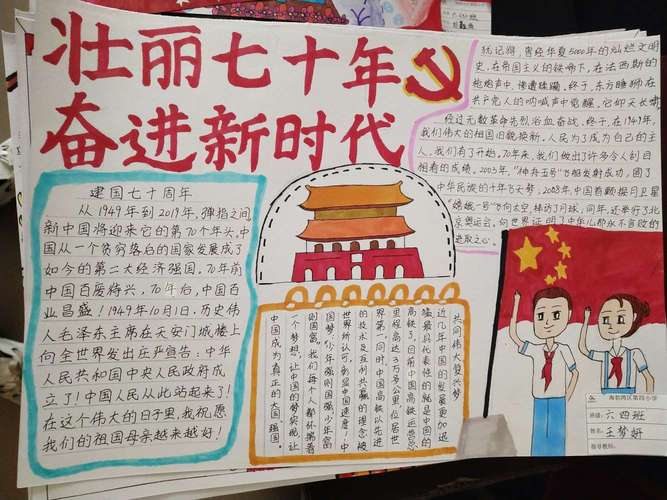 壮丽七十年
奋进新时代
犹记得,曾经华夏5000年的灿烂文明
史,在帝国主义的铁啼下,在法西斯的
炮炮声中,惨遭蹂躏。终于,东方睡狮在
共产党人的呐喊声中觉醒,它仰天长啸
经过无数革命先烈浴血奋战,终于,在1949年,
我们伟大的祖国旧貌换新。人民为了成为自己的主
人,我们有了开始。70年来,我们做出了许多令人刮目
相看的成绩。2003年,“神舟五号”飞船发射成功,圆了
中华民族的千年飞天梦;2008年,中国首颗探月卫星
“嫦娥一号”飞向太空,拜访了月球,同年,还举行了北
京奥运会,向世界证明了中华儿郎永不言败的
进取之心。
建国七十周年
从1949年到2019年,弹指之间
新中国将迎来它的第70个年头,中
国从一个贫穷落后的国家发展成了
如今的第二大经济强国。70年前
中国百废待兴,70年后,中国百
业昌盛!1949年10月1日,历史伟
人毛泽东主席在天安门城楼上
向全世界发出庄严宣告:中华
人民共和国中央人民政府成
立了!中国人民从此站起来了!
在这个伟大的日子里,我祝愿
我们的祖国母亲越来越好!
共同伟大复兴梦
近几年中国的发展更加迅
猛,最具代表性的就是中国的
高铁了,目前中国高铁运营总
里程高达3万多公里,位居世
界第一,同时,中国高铁以先进
的技术及互利共赢的理念被
世界所认可,彰显中国速度!中
国梦,少年强则国强,少年富
则国富,我们每个人都怀揣着
一个梦想,让中国的梦实现,让
中国成为真正的大国、强国。
第四小学
班级:六四班
姓名:王梦妍
指导教师: